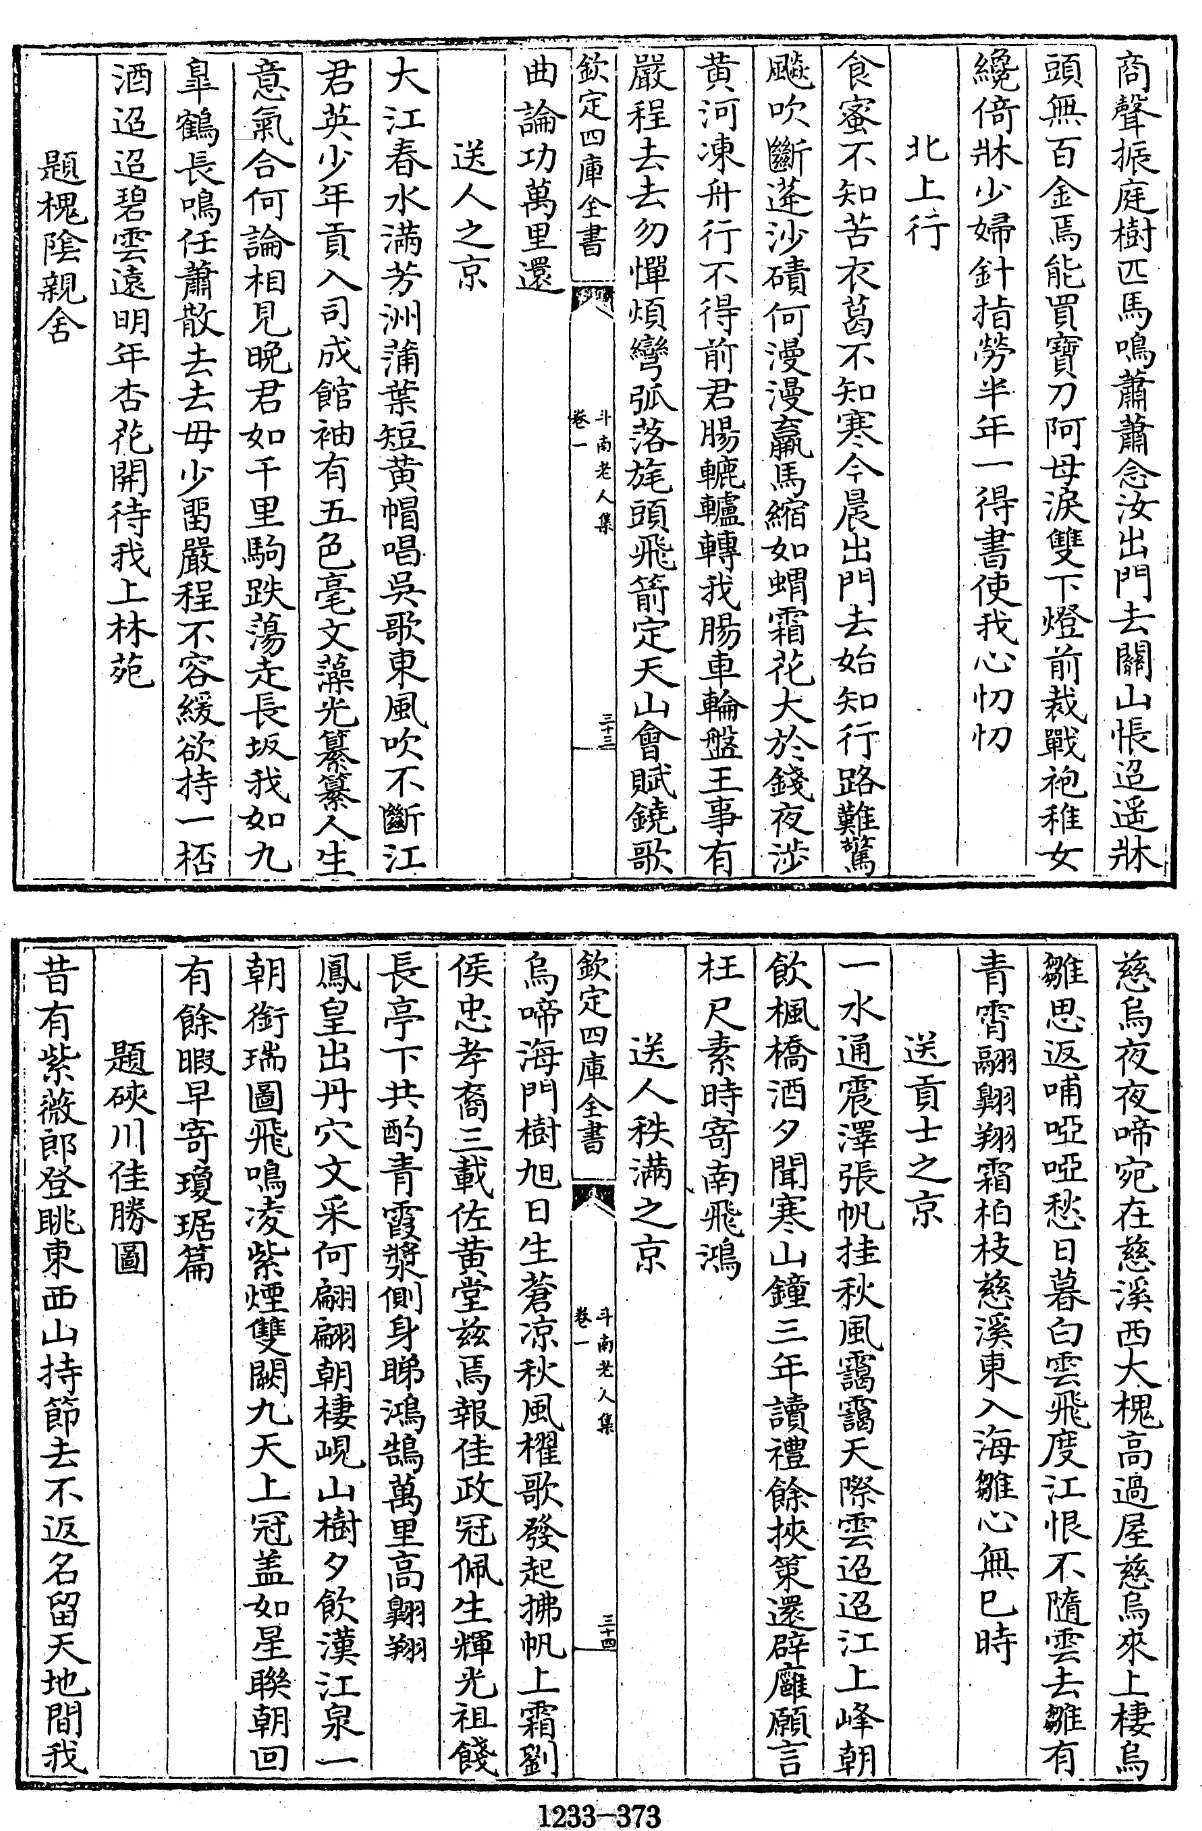 商聲振庭樹匹馬鳴蕭蕭念汝出門去關山悵迢遥牀
頭無百金焉能買寶刀阿母淚雙下燈前裁戰袍稚女
纔倚牀少婦針指勞半年一得書使我心忉忉
北上行
食蜜不知苦衣葛不知寒今晨出門去始知行路難驚
飈吹斷蓬沙磧何漫漫羸馬縮如蝟霜花大於錢夜渉
黄河凍舟行不得前君腸轆轤轉我腸車輪盤王事有
嚴程去去勿憚煩彎弧落旄頭飛箭定天山會賦鐃歌
欽定四庫全書
斗南老人集
卷一
三十三
曲論功萬里還
送人之京
大江春水滿芳洲蒲葉短黄帽唱吳歌東風吹不斷江
君英少年貢入司成館袖有五色毫文藻光纂纂人生
意氣合何論相見晚君如千里駒跌蕩走長坂我如九
皐鶴長鳴任蕭散去去毋少留嚴程不容緩欲持一桮
酒迢迢碧雲遠明年杏花開待我上林苑
題槐陰親舍
慈烏夜夜啼宛在慈溪西大槐高過屋慈烏來上棲烏
雛思返哺啞啞愁日暮白雲飛度江恨不隨雲去雛有
青霄翮翺翔霜柏枝慈溪東入海雛心無已時
送貢士之京
一水通震澤張帆挂秋風靄靄天際雲迢迢江上峰朝
飲楓橋酒夕聞寒山鐘三年讀禮餘挾策還辟廱願言
枉尺素時寄南飛鴻
送人秩滿之京
欽定四庫全書
斗南老人集
卷一
三十四
烏啼海門樹旭日生蒼凉秋風櫂歌發起拂帆上霜劉
侯忠孝裔三載佐黄堂兹焉報佳政冠佩生輝光祖餞
長亭下共酌青霞漿側身睇鴻鵠萬里高翺翔
鳳皇出丹穴文采何翩翩朝棲峴山樹夕飲漢江泉一
朝銜瑞圖飛鳴凌紫煙雙闕九天上冠盖如星聯朝回
有餘暇早寄瓊琚篇
題硤川佳勝圖
昔有紫薇郎登眺東西山持節去不返名留天地間我
1233-373